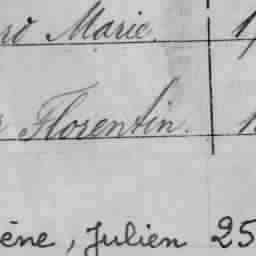 ro Marie. 1
Florentin. 1
ène, Julien 25